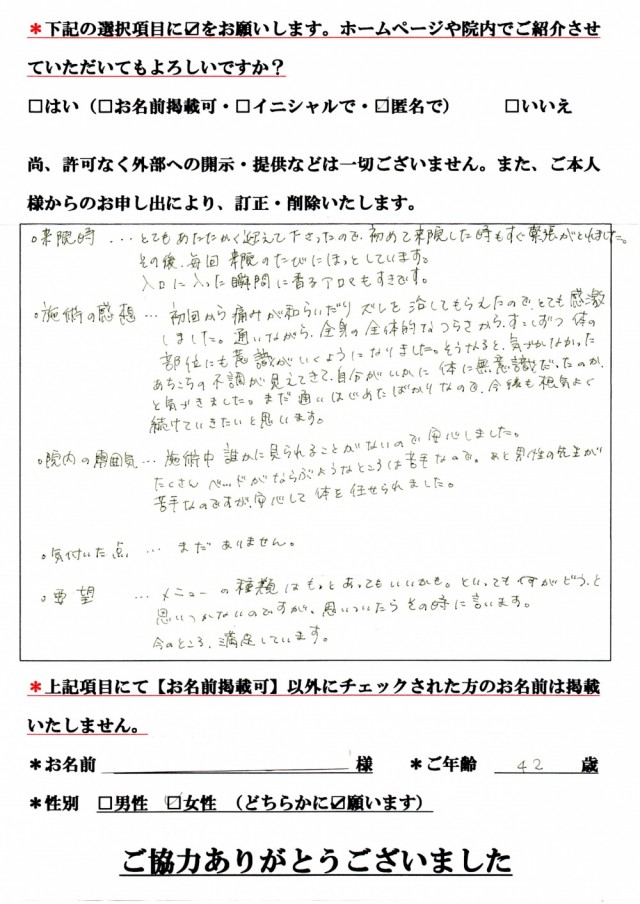 ＊下記の選択項目に☑をお願いします。ホームページや院内でご紹介させ
ていただいてもよろしいですか？
□はい（□お名前掲載可・□イニシャルで・☑匿名で）　　□いいえ
尚、許可なく外部への開示・提供などは一切ございません。また、ご本人
様からのお申し出により、訂正・削除いたします。
○来院時 ... とてもあたたかく迎えて下さったので、初めて来院した時もすぐ緊張がとれました。
その後、毎回来院のたびにほっとしています。
入口に入った瞬間に香るアロマもすきです。
○施術の感想 ... 初回から痛みが和らいだりズレを治してもらえたので、とても感激
しました。通いながら、全身の全体的なつらさから、すこしずつ体の
部位にも意識がいくようになりました。そうなると、気づかなかった
あちこちの不調が見えてきて、自分がいかに体に無意識だったのか、
と気づきました。まだ通いはじめたばかりなので、今後も根気よく
続けていきたいと思います。
○院内の雰囲気 ... 施術中誰かに見られることがないので安心しました。
たくさんベッドがならぶようなところは苦手なので。あと男性の先生が
苦手なのですが、安心して体を任せられました。
○気付いた点 ... まだありません。
○要望 ... メニューの種類はもっとあってもいいかも。といっても何がどう、と
思いつかないのですが、思いついたらその時に言います。
今のところ、満足しています。
＊上記項目にて【お名前掲載可】以外にチェックされた方のお名前は掲載
いたしません。
＊お名前　　　　　　　　　　様　＊ご年齢　42　歳
＊性別　□男性　☑女性　（どちらかに☑願います）
ご協力ありがとうございました